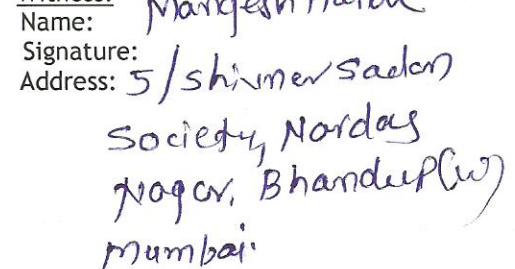 Witness:
Name: Mangesh
Signature:
Address: 5/shivner Sadan
Society, Nardas
Nagar, Bhandup(W)
Mumbai.